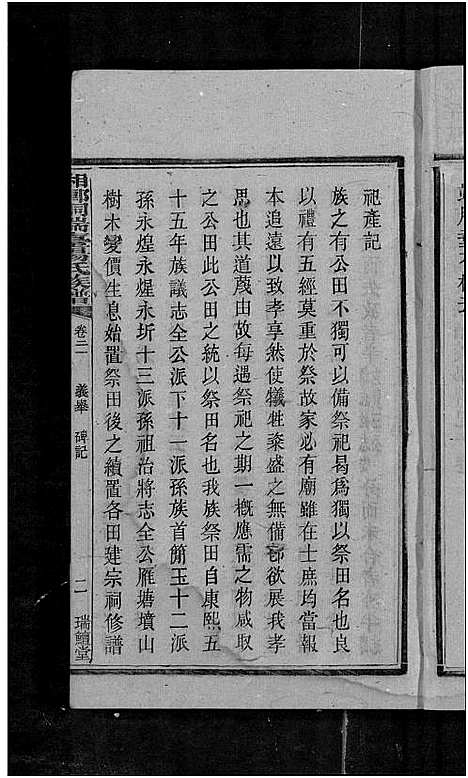 祀產記
族之有公田不獨可以備祭祀曷爲獨以祭田名也良
以禮有五經莫重於祭故家必有廟雖在士庶均當報
本追遠以致孝享然使犧牲粢盛之無備卽欲展我孝
思也其道蔑由故每遇祭祀之期一槪應需之物咸取
之公田此公田之統以祭田名也我族祭田自康熙五
十五年族議志全公派下十一派孫族首節玉十二派
孫永煌永煋永圻十三派孫祖治將志全公雁塘墳山
樹木變價生息始置祭田後之續置各田建宗祠修譜
湘鄉銅瑞 楊氏族譜
卷二
義舉
碑記
二
瑞鱣堂